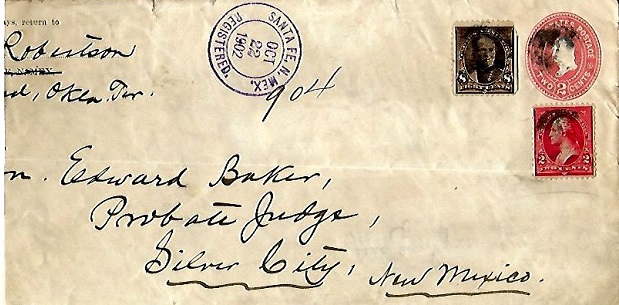 ays, return to
Robertson
Okla. Ter.
SANTA FE, N. MEX.
OCT
22
1902
REGISTERED.
904
8 8
EIGHT CENTS
POSTAGE
TWO 2 CENTS
2 2
n. Edward Baker,
Probate Judge,
Silver City,
New Mexico.